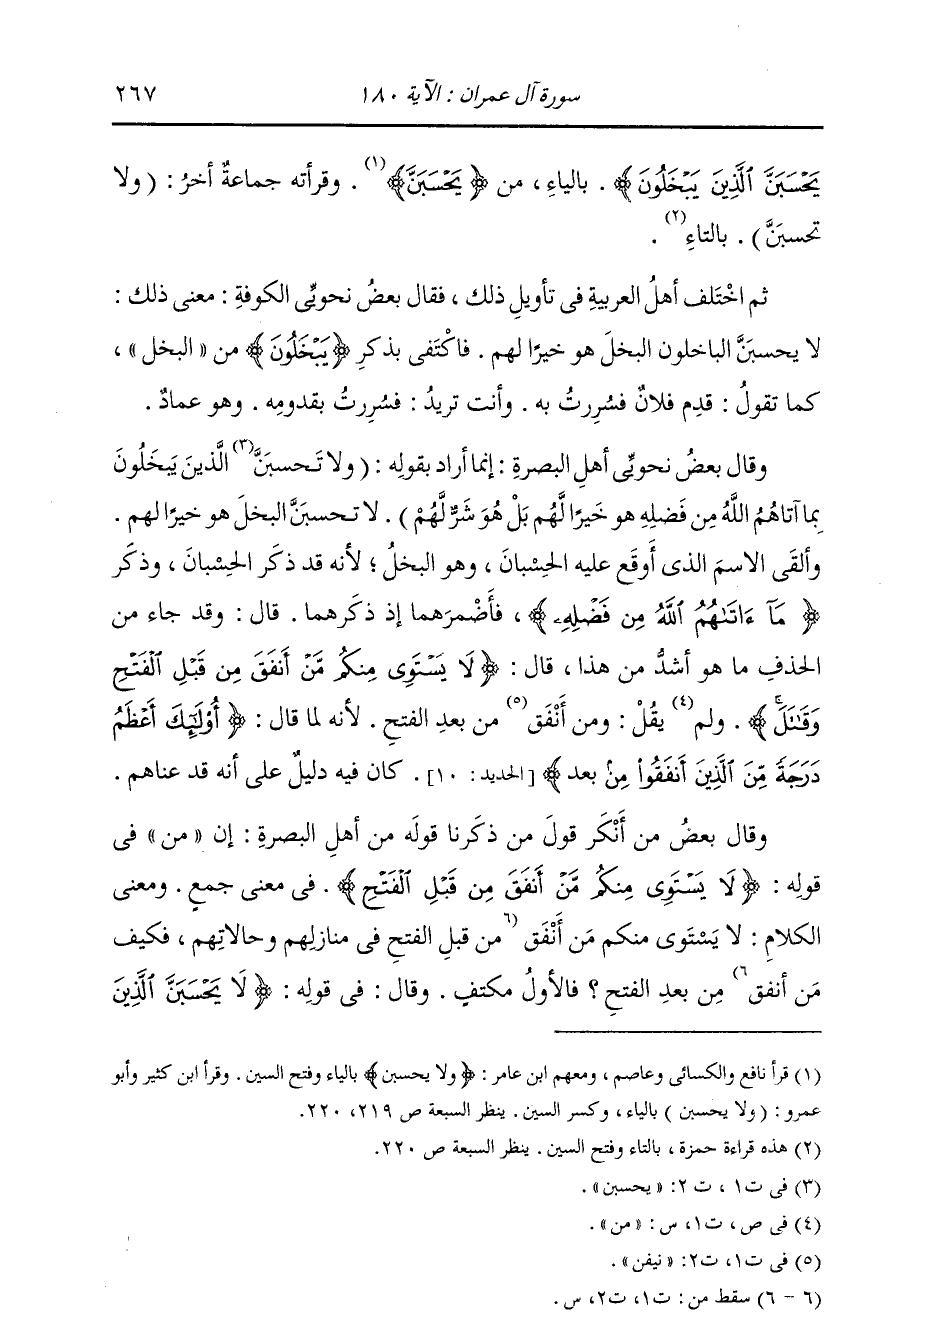 سورة آل عمران : الآية ١٨٠ ٢٦٧
يَحْسَبَنَّ ٱلَّذِينَ يَبْخَلُونَ ﴾ . بالياءِ ، من ﴿ يَحْسَبَنَّ ﴾(١) . وقرأته جماعةٌ أخرُ : ( ولا
تحسبنَّ ) . بالتاءِ(٢) .
ثم اخْتَلف أهلُ العربيةِ فى تأويلِ ذلك ، فقال بعضُ نحويِّى الكوفةِ : معنى ذلك :
لا يحسبنَّ الباخلون البخلَ هو خيرًا لهم . فاكْتفى بذكرِ ﴿ يَبْخَلُونَ ﴾ من «البخل» ،
كما تقولُ : قدِم فلانٌ فسُرِرتُ به . وأنت تريدُ : فسُرِرتُ بقدومِه . وهو عمادٌ .
وقال بعضُ نحويِّى أهلِ البصرةِ : إنما أراد بقولِه : ( ولا تَحسبَنَّ(٣) الَّذينَ يَبخَلُونَ
بِما آتاهُمُ اللَّهُ مِن فَضلِهِ هو خَيرًا لَّهُم بَلْ هُوَ شَرٌّ لَّهُمْ ) . لا تحسبَنَّ البخلَ هو خيرًا لهم .
وألقَى الاسمَ الذى أَوقَع عليه الحِسْبانَ ، وهو البخلُ ؛ لأنه قد ذكَر الحِسْبانَ ، وذكَر
﴿ مَآ ءَاتَىٰهُمُ ٱللَّهُ مِن فَضْلِهِۦ ﴾ ، فأَضْمرَهما إذ ذكَرهما . قال : وقد جاء من
الحذفِ ما هو أشدُّ من هذا ، قال : ﴿ لَا يَسْتَوِى مِنكُم مَّنْ أَنفَقَ مِن قَبْلِ ٱلْفَتْحِ
وَقَٰتَلَۚ ﴾ . ولم(٤) يقُلْ : ومن أَنْفَق(٥) من بعدِ الفتحِ . لأنه لما قال : ﴿ أُوْلَٰٓئِكَ أَعْظَمُ
دَرَجَةً مِّنَ ٱلَّذِينَ أَنفَقُوا۟ مِنۢ بعد ﴾ [الحديد: ١٠] . كان فيه دليلٌ على أنه قد عناهم .
وقال بعضُ من أَنْكَر قولَ من ذكَرنا قولَه من أهلِ البصرةِ : إن «من» فى
قولِه : ﴿ لَا يَسْتَوِى مِنكُم مَّنْ أَنفَقَ مِن قَبْلِ ٱلْفَتْحِ ﴾ . فى معنى جمعٍ . ومعنى
الكلامِ : لا يَسْتَوى منكم مَن أَنْفَق (٦من قبلِ الفتحِ فى منازلِهم وحالاتِهم ، فكيف
مَن أنفق٦) مِن بعدِ الفتحِ ؟ فالأولُ مكتفٍ . وقال : فى قولِه : ﴿ لَا يَحْسَبَنَّ ٱلَّذِينَ
(١) قرأ نافع والكسائى وعاصم ، ومعهم ابن عامر : ﴿ ولا يحسبن ﴾ بالياء وفتح السين . وقرأ ابن كثير وأبو
عمرو : ( ولا يحسبن ) بالياء ، وكسر السين . ينظر السبعة ص ٢١٩، ٢٢٠.
(٢) هذه قراءة حمزة ، بالتاء وفتح السين . ينظر السبعة ص ٢٢٠.
(٣) فى ت١ ، ت ٢: «يحسبن» .
(٤) فى ص ، ت١، س : «من» .
(٥) فى ت١، ت٢: «نيفن» .
(٦ - ٦) سقط من : ت١، ت٢، س .